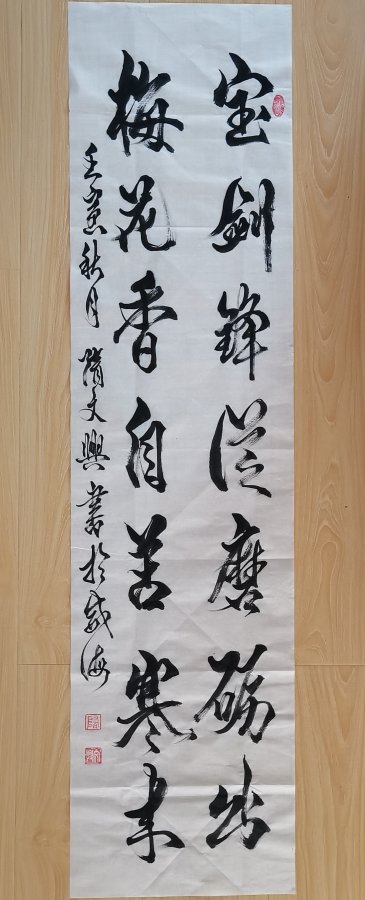 宝剑锋從磨砺出
梅花香自苦寒来
壬寅秋月 隋文興書於威海